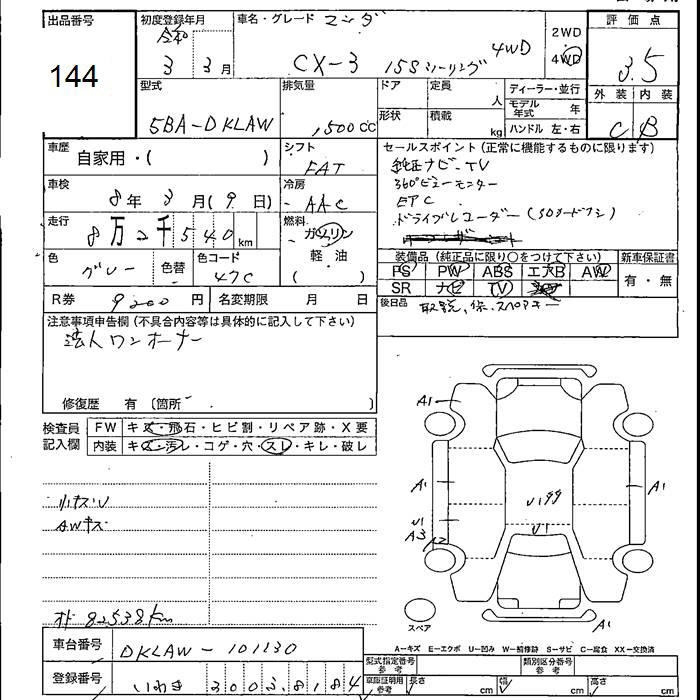 出品番号
144
初度登録年月
令和
3 3月
車名・グレード マツダ
CX-3 15Sツーリング 4WD
2WD
4WD
評価点
3.5
外装 内装
C B
型式
5BA-DKLAW
排気量
1,500cc
ドア
定員
人
形状
積載
kg
ディーラー・並行
モデル年式 年
ハンドル 左・右
車歴
自家用・( )
シフト
FAT
車検
8年3月(9日)
冷房
AAC
走行
8万2千540km
燃料
ガソリン
軽油
( )
色
グレー
色替
色コード
47C
R券
円
名変期限 月 日
セールスポイント(正常に機能するものに限ります)
純正ナビ・TV
360°ビューモニター
ETC
装備品(純正品に限り○をつけて下さい)
新車保証書
PS PW ABS エアB AW
SR ナビ TV
有・無
後日品
取説,保,スペアキー
注意事項申告欄(不具合内容等は具体的に記入して下さい)
法人ワンオーナー
修復歴 有 〔箇所 〕
検査員
記入欄
FW キズ・飛石・ヒビ割・リペア跡・X要
内装 キズ・汚れ・コゲ・穴・スレ・キレ・破レ
AWキズ
オド 82538km
A1
A1
A1
U199
U1
A3
A2
U1
A1
スペア
A―キズ E―エクボ U―凹み W―補修跡 S―サビ C―腐食 XX―交換済
車台番号
DKLAW-101130
登録番号
いわき 300 3 8184
型式指定番号
参考
類別区分番号
参考
車庫証明用
参考
長さ cm
幅 cm
高さ cm